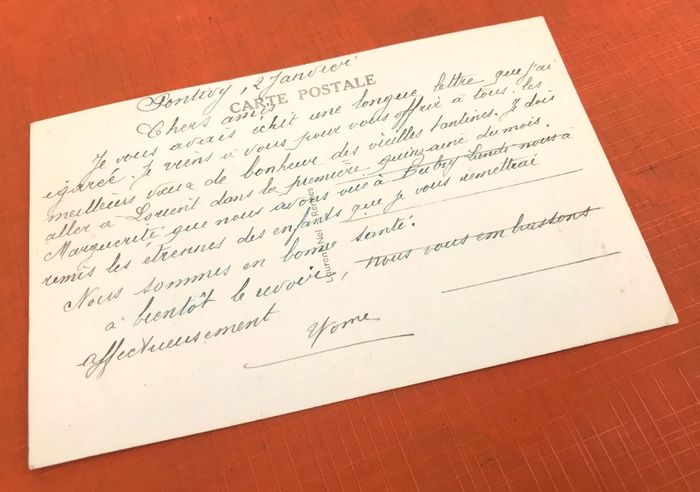 Pontivy, 2 Janvier
CARTE POSTALE
Chers amis
Je vous avais écrit une longue lettre que j'ai
égarée. Je viens à vous pour vous offrir à tous les
meilleurs vœux de bonheur des vieilles tantines. Je dois
aller à Lorient dans la première quinzaine du mois.
Marguerite que nous avons vue à Bubry lundi nous a
remis les étrennes des enfants que je vous remettrai
Nous sommes en bonne santé.
à bientôt le revoir, nous vous embrassons
affectueusement
Laurent-Nel Rennes